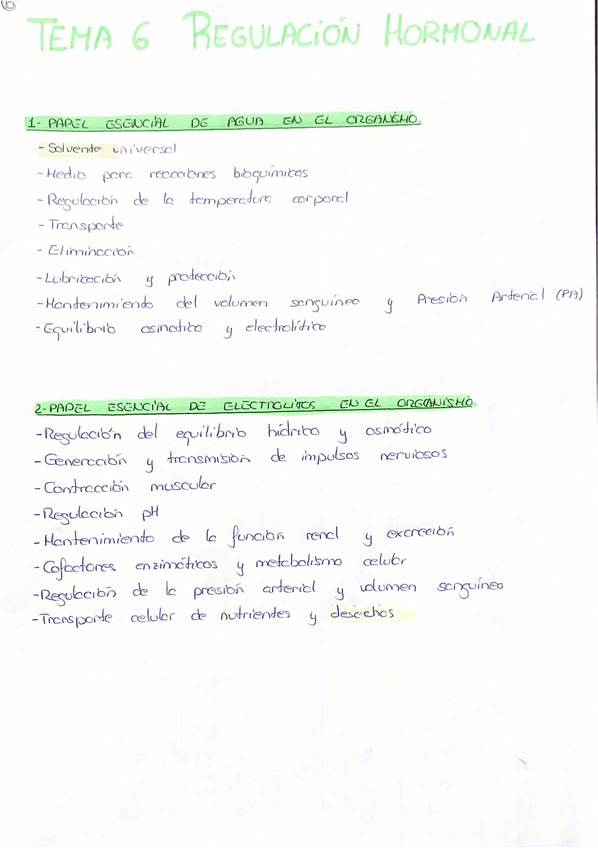 6
TEMA 6 REGULACIÓN HORMONAL
1- PAPEL ESENCIAL DE AGUA EN EL ORGANISMO.
- Solvente universal
- Medio para reacciones bioquímicas
- Regulación de la temperatura corporal
- Transporte
- Eliminación
- Lubricación y protección
- Mantenimiento del volumen sanguíneo y Presión Arterial (PA)
- Equilibrio osmótico y electrolítico
2- PAPEL ESENCIAL DE ELECTROLITOS EN EL ORGANISMO.
- Regulación del equilibrio hídrico y osmótico
- Generación y transmisión de impulsos nerviosos
- Contracción muscular
- Regulación pH
- Mantenimiento de la función renal y excreción
- Cofactores enzimáticos y metabolismo celular
- Regulación de la presión arterial y volumen sanguíneo
- Transporte celular de nutrientes y desechos